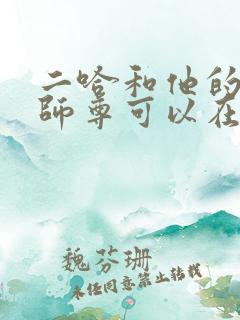 二哈和他的
師尊可以在
魏芬珊
未经同意禁止转载